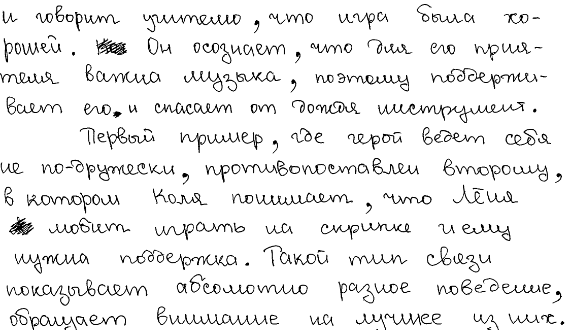 и говорит учителю, что игра была хо-
рошей. Он осознает, что для его прия-
теля важна музыка, поэтому поддержи-
вает его, и спасает от дождя инструмент.
Первый пример, где герой ведет себя
не по-дружески, противопоставлен второму,
в котором Коля понимает, что Лёня
любит играть на скрипке и ему
нужна поддержка. Такой тип связи
показывает абсолютно разное поведение,
обращает внимание на лучшее из них.